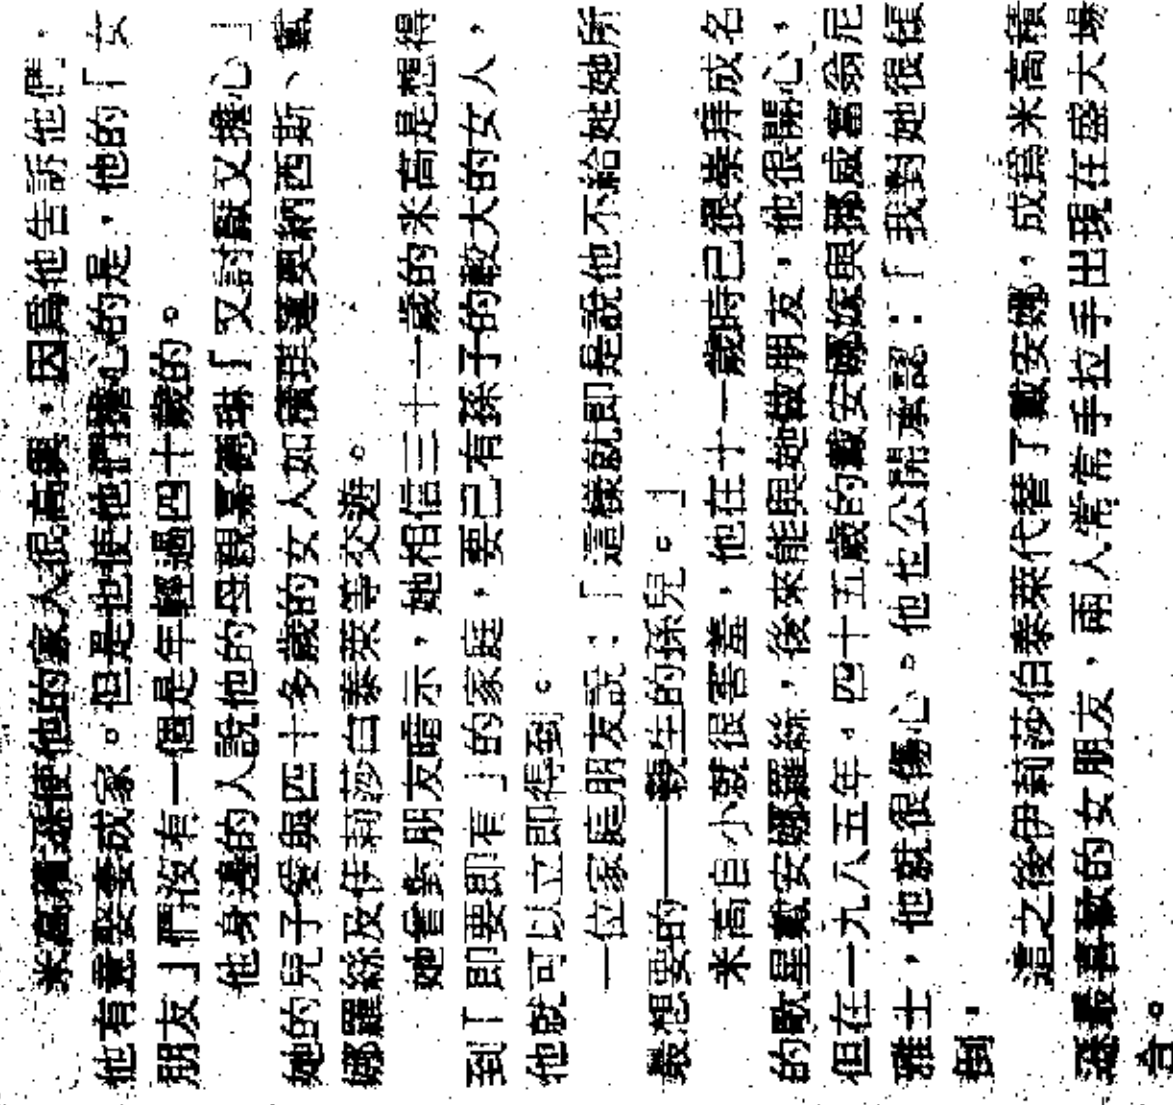 米高積遜使他的家人很高興,因爲他告訴他們,
他有意娶妻成家。但是也使他們擔心的是,他的「女
朋友」們沒有一個是年輕過四十歲的。
他身邊的人說他的母親嘉德琳「又討厭又擔心」
她的兒子愛與四十多歲的女人如積琪蓮奧納西斯、戴
娜羅絲及伊莉莎白泰萊等交遊。
她曾對朋友暗示,她相信三十一歲的米高是想得
到「即要即有」的家庭,要已有孫子的較大的女人,
他就可以立即得到。
一位家庭朋友說:「這樣就即是說他不給她她所
最想要的——親生的孫兒。」
米高自小就很害羞,他在十一歲時已很崇拜成名
的歌星戴安娜羅絲,後來能與她做朋友,他很開心,
但在一九八五年,四十五歲的戴安娜嫁與挪威富翁尼
雅士,他就很傷心。他也公開承認:「我對她很傾
倒。
這之後伊莉莎伯泰萊代替了戴安娜,成爲米高積
遜最喜歡的女朋友,兩人常常手拉手出現在盛大場
合。